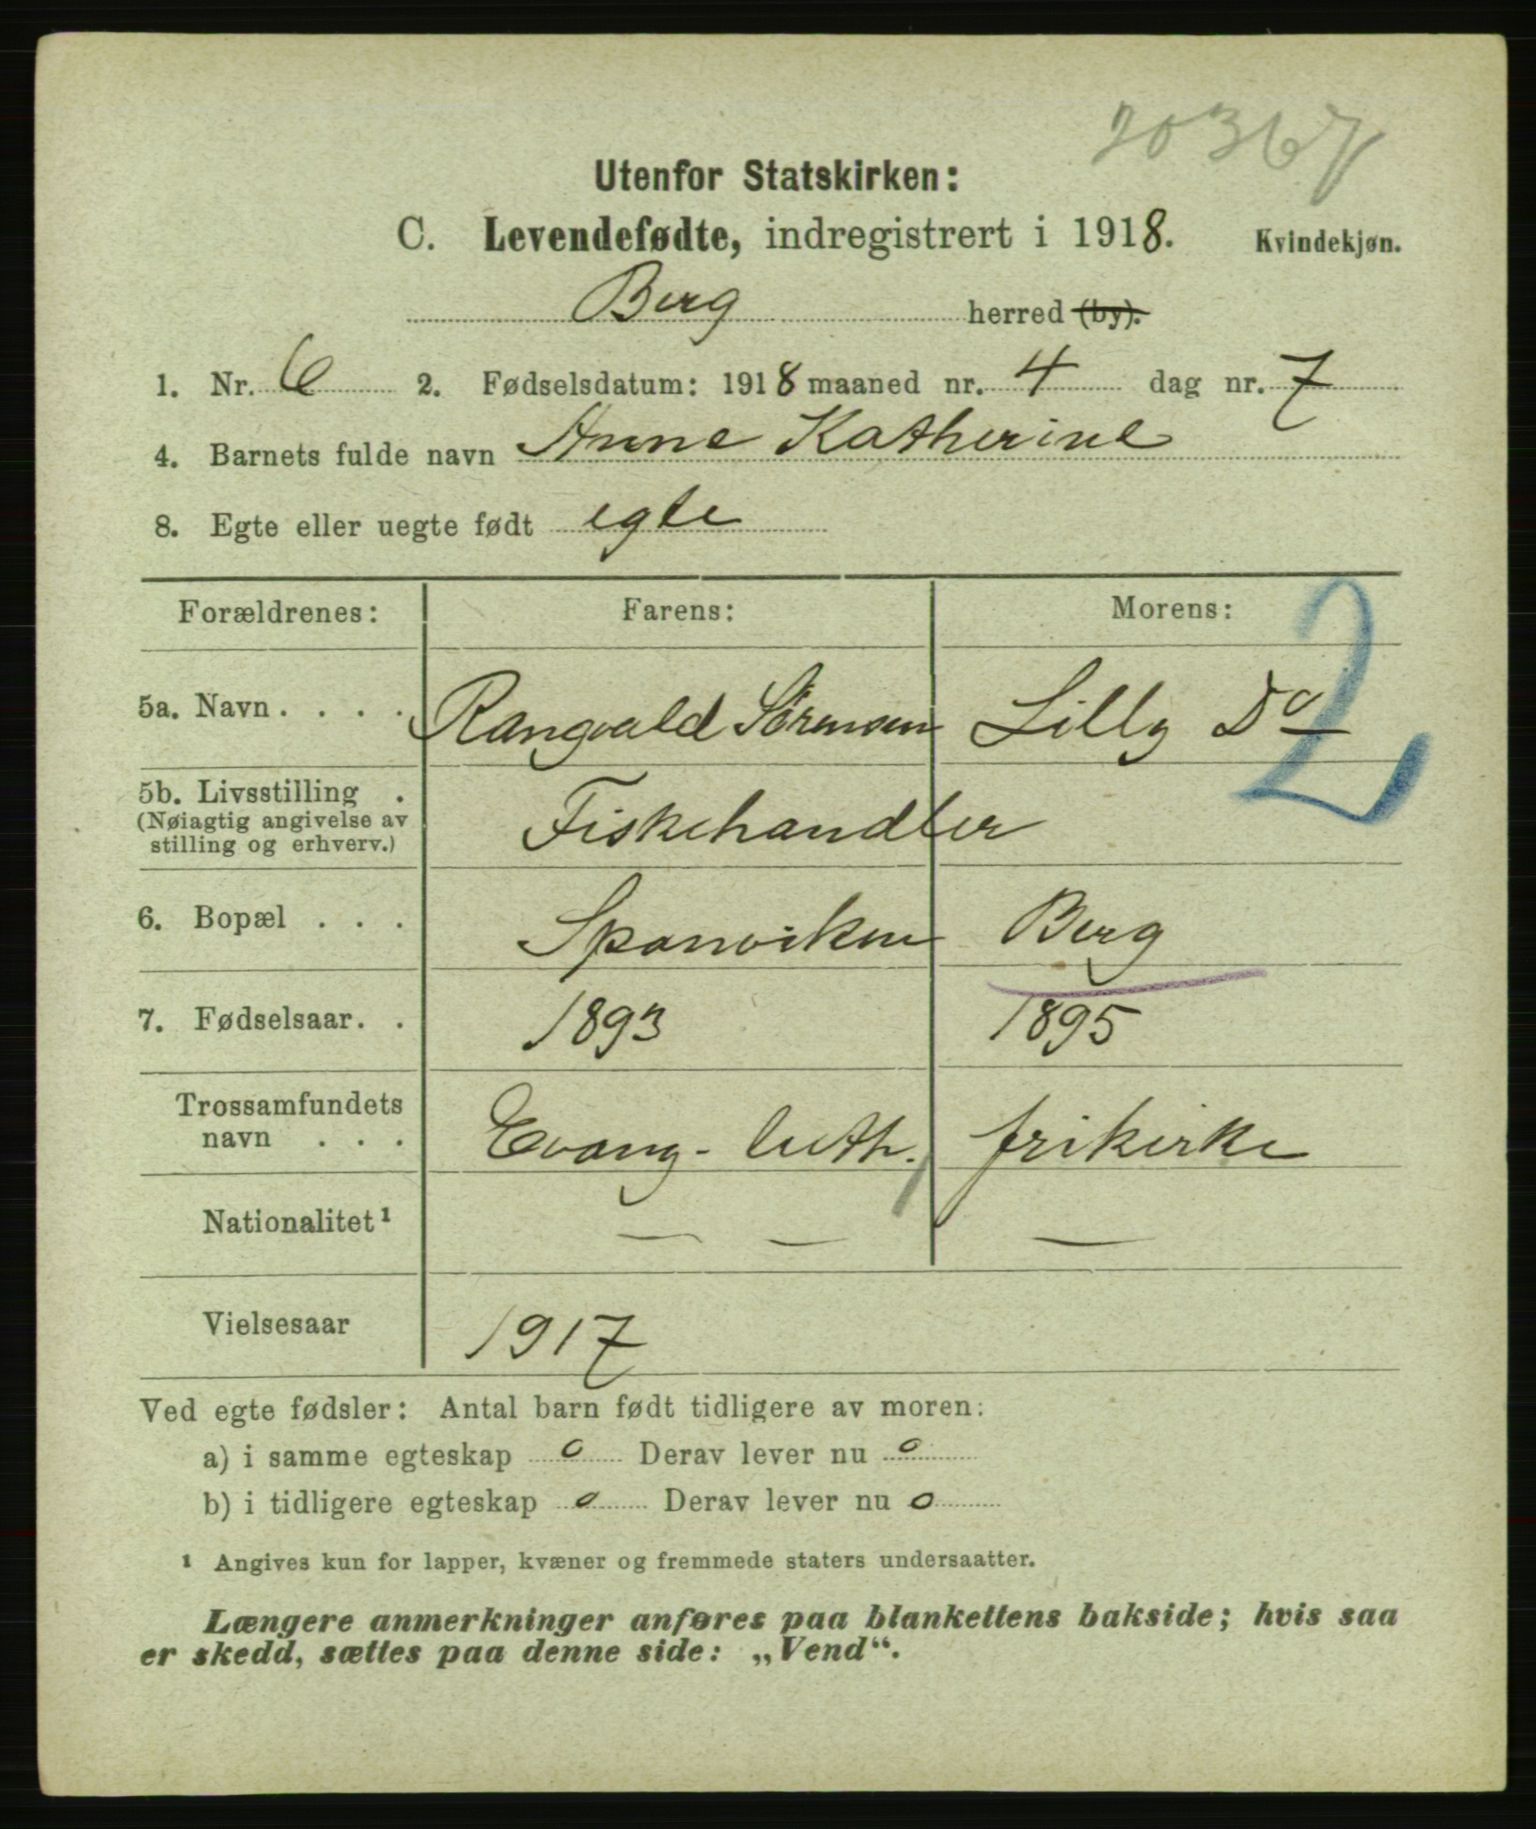 20367
Utenfor Statskirken:
C. Levendefødte, indregistrert i 1918. Kvindekjøn.
Berg herred (by).
1. Nr. 6 2. Fødselsdatum: 1918 maaned nr. 4 dag nr. 7
4. Barnets fulde navn Anne Katherine
8. Egte eller uegte født egte
2
Forældrenes: Farens: Morens:
5a. Navn . . . . Rangvald Sörensen Lilly Do
5b. Livsstilling .
(Nøiagtig angivelse av
stilling og erhverv.) Fiskehandler
6. Bopæl . . . Sponviken Berg
7. Fødselsaar. . 1893 1895
Trossamfundets
navn . . . Evang - luth. frikirke
Nationalitet¹ — — —
Vielsesaar 1917
Ved egte fødsler: Antal barn født tidligere av moren:
a) i samme egteskap 0 Derav lever nu 0
b) i tidligere egteskap 0 Derav lever nu 0
¹ Angives kun for lapper, kvæner og fremmede staters undersaatter.
Længere anmerkninger anføres paa blankettens bakside; hvis saa
er skedd, sættes paa denne side: „Vend“.